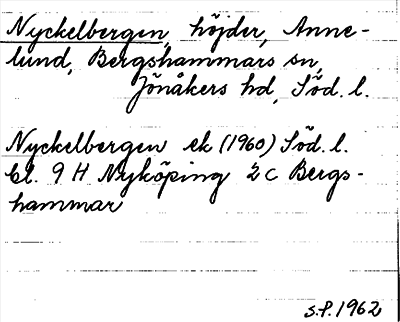 Nyckelbergen, höjder, Anne-
lund, Bergshammars sn,
Jönåkers hd, Söd. l.
Nyckelbergen ek (1960) Söd. l.
bl. 9 H Nyköping 2 c Bergs-
hammar
S.P. 1962